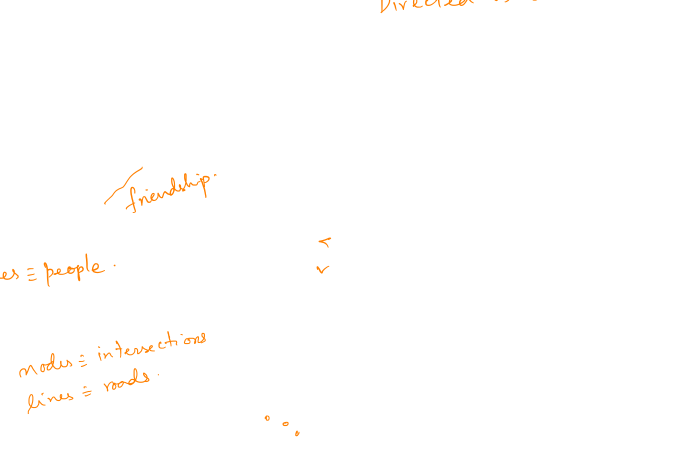 Directed
friendship.
es ≡ people.
nodes ≡ intersections
lines ≡ roads.